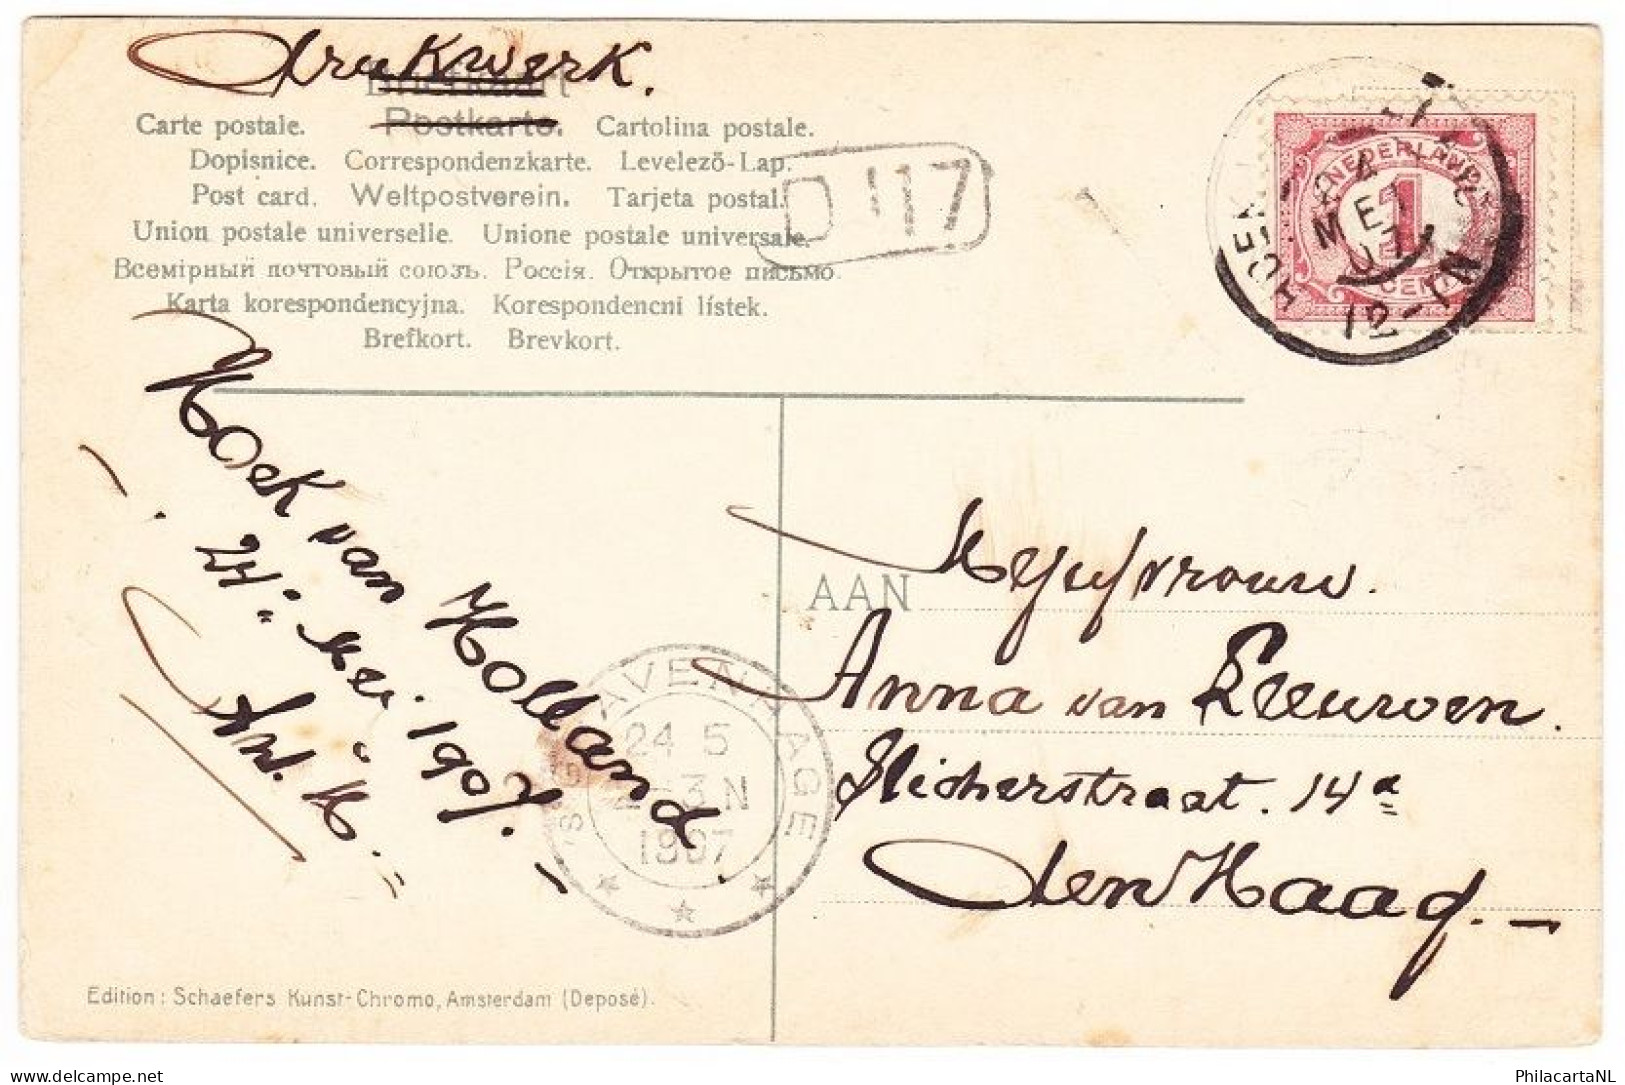 drukwerk.
Briefkaart
Postkarte.
Carte postale. Cartolina postale.
Dopisnice. Correspondenzkarte. Levelező-Lap.
Post card. Weltpostverein. Tarjeta postal.
Union postale universelle. Unione postale universale.
Всемірный почтовый союзъ. Россія. Открытое письмо.
Karta korespondencyjna. Korespondencni lístek.
Brefkort. Brevkort.
117
HOEK
24
MEI
07
12-1N
NEDERLAND
1
CENT
Hoek van Holland
24 Mei 1907.
AAN
Mejufvrouw.
Anna van Leeuwen.
Hicherstraat. 14a
den Haag.
'S GRAVENHAGE
24 5
2-3N
1907
Edition: Schaefers Kunst-Chromo, Amsterdam (Deposé).
PhilacartaNL